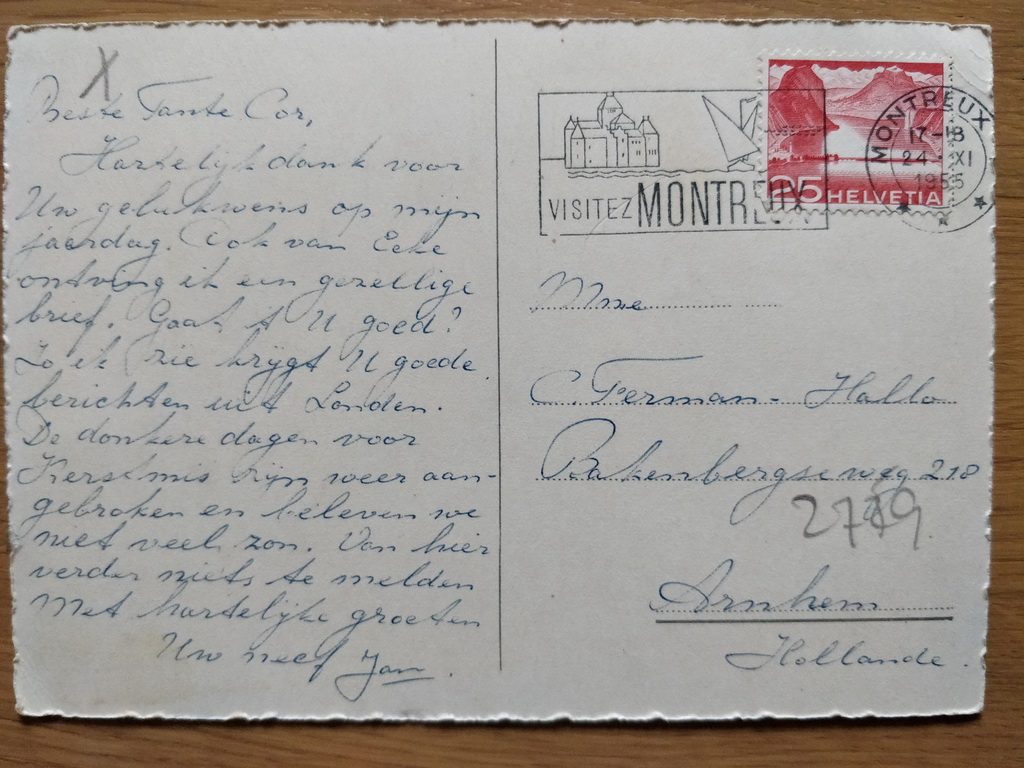 X
Beste Tante Cor,
Hartelijk dank voor
Uw gelukwens op mijn
jaardag. Ook van Eeke
ontving ik een gezellige
brief. Gaat 't U goed?
Zo ik zie krijgt U goede
berichten uit Londen.
De donkere dagen voor
Kerstmis zijn weer aan-
gebroken en beleven we
niet veel zon. Van hier
verder niets te melden
Met hartelijke groeten
Uw neef Jan.
VISITEZ MONTREUX
25 HELVETIA
MONTREUX
17-18
24 XI
1955
Mme
C. Ferman - Hallo
Bakenbergseweg 218
2719
Arnhem
Hollande.